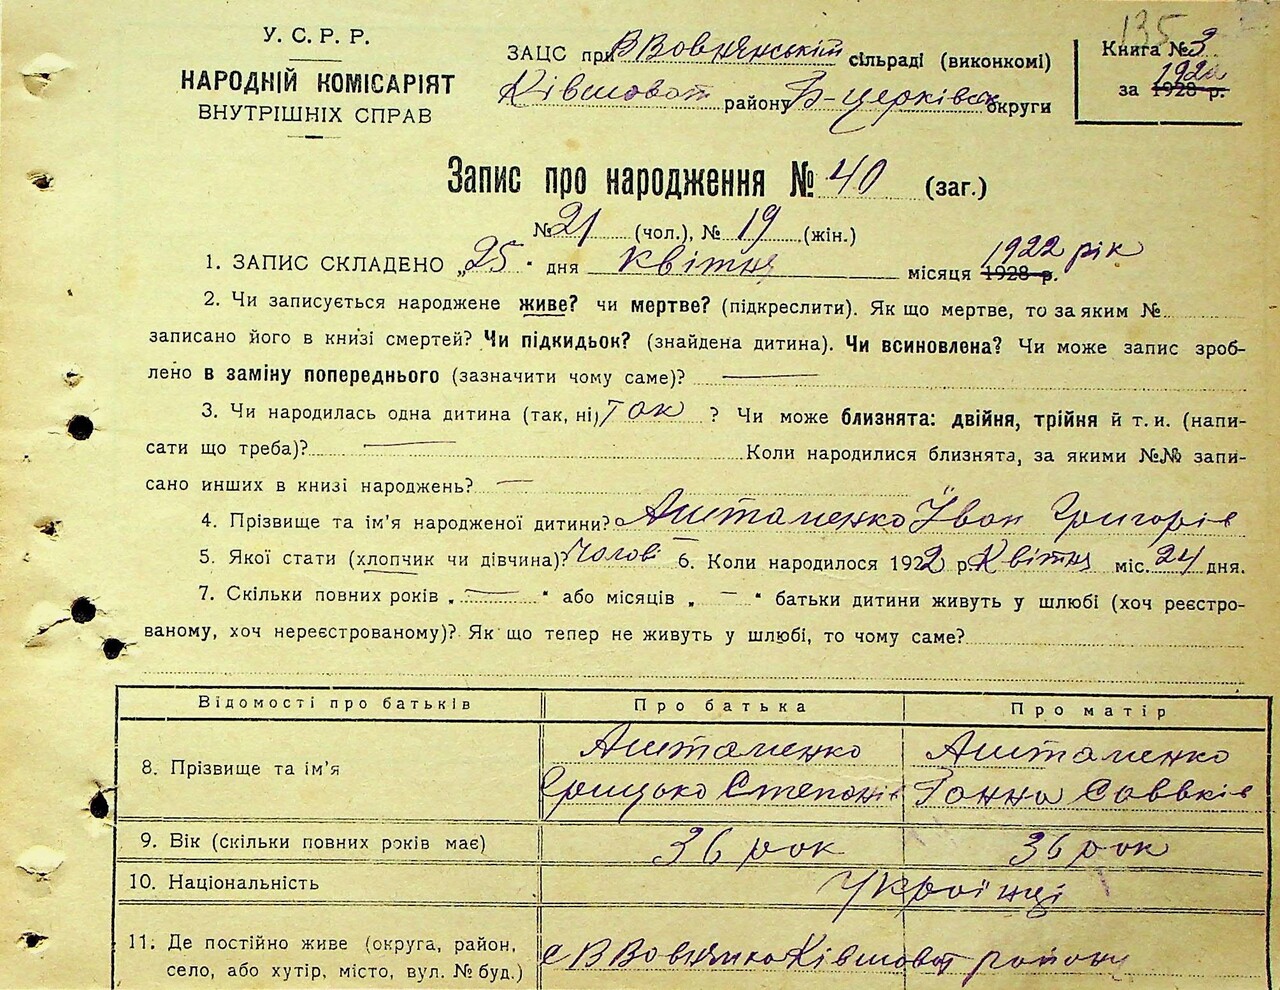 135
У. С. Р. Р.
НАРОДНІЙ КОМІСАРІЯТ
ВНУТРІШНІХ СПРАВ
ЗАЦС при В Вовнянській сільраді (виконкомі)
Ківшоват району Б-церківск округи
Книга № 3
за 1928 р. 1922
Запис про народження № 40 (заг.)
№ 21 (чол.), № 19 (жін.)
1. ЗАПИС СКЛАДЕНО „25" дня квітня місяця 1928 р. 1922 рік
2. Чи записується народжене живе? чи мертве? (підкреслити). Як що мертве, то за яким №
записано його в книзі смертей? Чи підкидьок? (знайдена дитина). Чи всиновлена? Чи може запис зроб-
лено в заміну попереднього (зазначити чому саме)? —
3. Чи народилась одна дитина (так, ні) так ? Чи може близнята: двійня, трійня й т. и. (напи-
сати що треба)? — Коли народилися близнята, за якими №№ запи-
сано инших в книзі народжень? —
4. Прізвище та ім'я народженої дитини? Іван Григорів
5. Якої стати (хлопчик чи дівчина)? Чолові 6. Коли народилося 1922 р. Квітня міс. 24 дня.
7. Скільки повних років „ — " або місяців „ — " батьки дитини живуть у шлюбі (хоч реєстро-
ваному, хоч нереєстрованому)? Як що тепер не живуть у шлюбі, то чому саме?
Відомості про батьків Про батька Про матір
8. Прізвище та ім'я Грицько Степанів Ганна Саввків
9. Вік (скільки повних років має) 36 рок 36 рок
10. Національність Українці
11. Де постійно живе (округа, район,
село, або хутір, місто, вул. № буд.) с В Вовнянка Ківшоват району